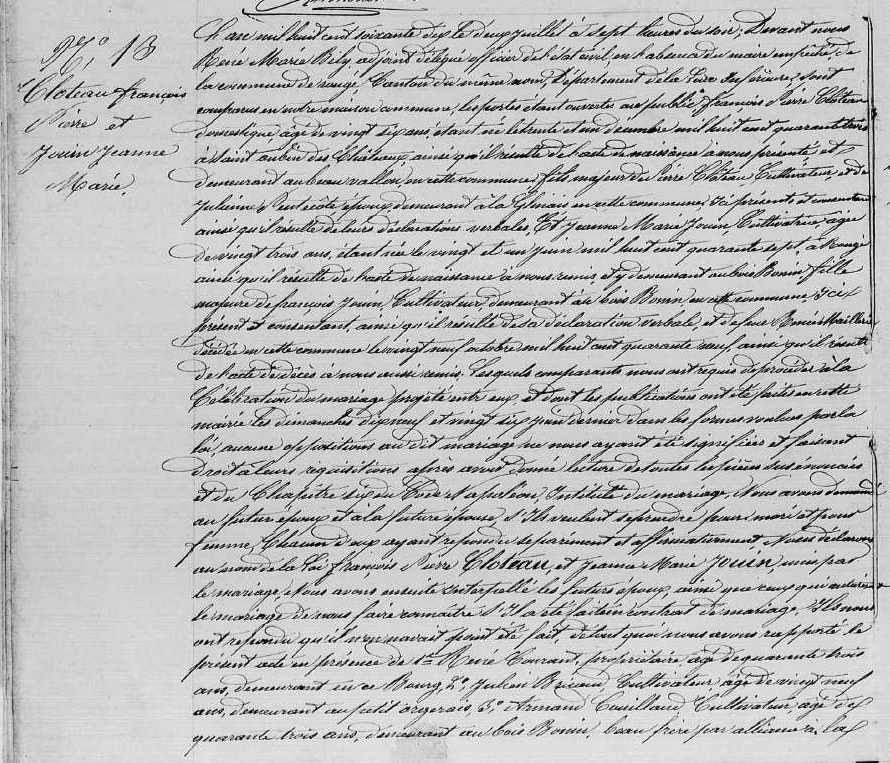 N°. 13
Cloteau françois
Pierre et
Jouin Jeanne
Marie.
L'an mil huit cent soixante dix le deux juillet à sept heures du soir; Devant nous
René Marie Bely, adjoint délégué officier de l'état civil, en l'absence du maire empêché, de
la commune de rougé, Canton du même nom, Département de la Loire Inférieure; Sont
comparus en notre maison commune, les portes étant ouvertes au public, françois Pierre Cloteau
domestique âgé de vingt six ans, étant né le trente et un décembre mil huit cent quarante trois
à Saint aubin des Châteaux, ainsi qu'il résulte de l'acte de naissance à nous présenté et
demeurant au beau vallon, en cette commune, fils majeur de Pierre Cloteau, Cultivateur et de
Julienne Pentecôte époux demeurant à la en cette commune, ici présents et consentants
ainsi qu'il résulte de leurs déclarations verbales, Et Jeanne Marie Jouin, Cultivatrice, âgée
de vingt trois ans, étant née le vingt et un juin mil huit cent quarante sept à Rougé
ainsi qu'il résulte de l'acte de naissance à nous remis, et y demeurant au bois Bonin, fille
majeure de françois Jouin, Cultivateur, demeurant au bois Bonin en cette commune, ici
présent et consentant, ainsi qu'il résulte de sa déclaration verbale, et de feue Renée Maillerie
décédée en cette commune le vingt neuf octobre mil huit cent quarante neuf ainsi qu'il résulte
de l'acte de décès à nous aussi remis, Lesquels comparants nous ont requis de procéder à la
Célébration du mariage projeté entr'eux et dont les publications ont été faites en cette
mairie les dimanches dix neuf et vingt six juin dernier dans les formes voulues par la
loi, aucune oppositions au dit mariage ne nous ayant été signifiées et faisant
droit à leurs réquisitions après avoir donné lecture de toutes les pièces susénoncées
et du Chapitre six du Code Napoléon, Intitulé du mariage, Nous avons demandé
au futur époux et à la future épouse, s'Ils veulent se prendre pour mari et pour
femme, Chacun d'eux ayant répondu séparément et affirmativement, Nous déclarons
au nom de la Loi françois Pierre Cloteau, et Jeanne Marie Jouin, unis par
le mariage, Nous avons ensuite interpellé les futurs époux, ainsi que ceux qui autorisent
le mariage de nous faire connaître s'Il a été fait un contrat de mariage, Ils nous
ont répondu qu'il n'en avait point été fait, de tout quoi nous avons rapporté le
présent acte en présence de 1° René Courant, propriétaire, âgé de quarante trois
ans, demeurant en ce Bourg, 2° Julien Cultivateur âgé de vingt neuf
ans, demeurant au petit orgerais, 3° Armand Cultivateur, âgé de
quarante trois ans, demeurant au bois Bonin, beau frère par alliance à la